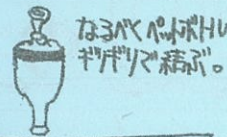 なるべくペットボトル
ギリギリで結ぶ。